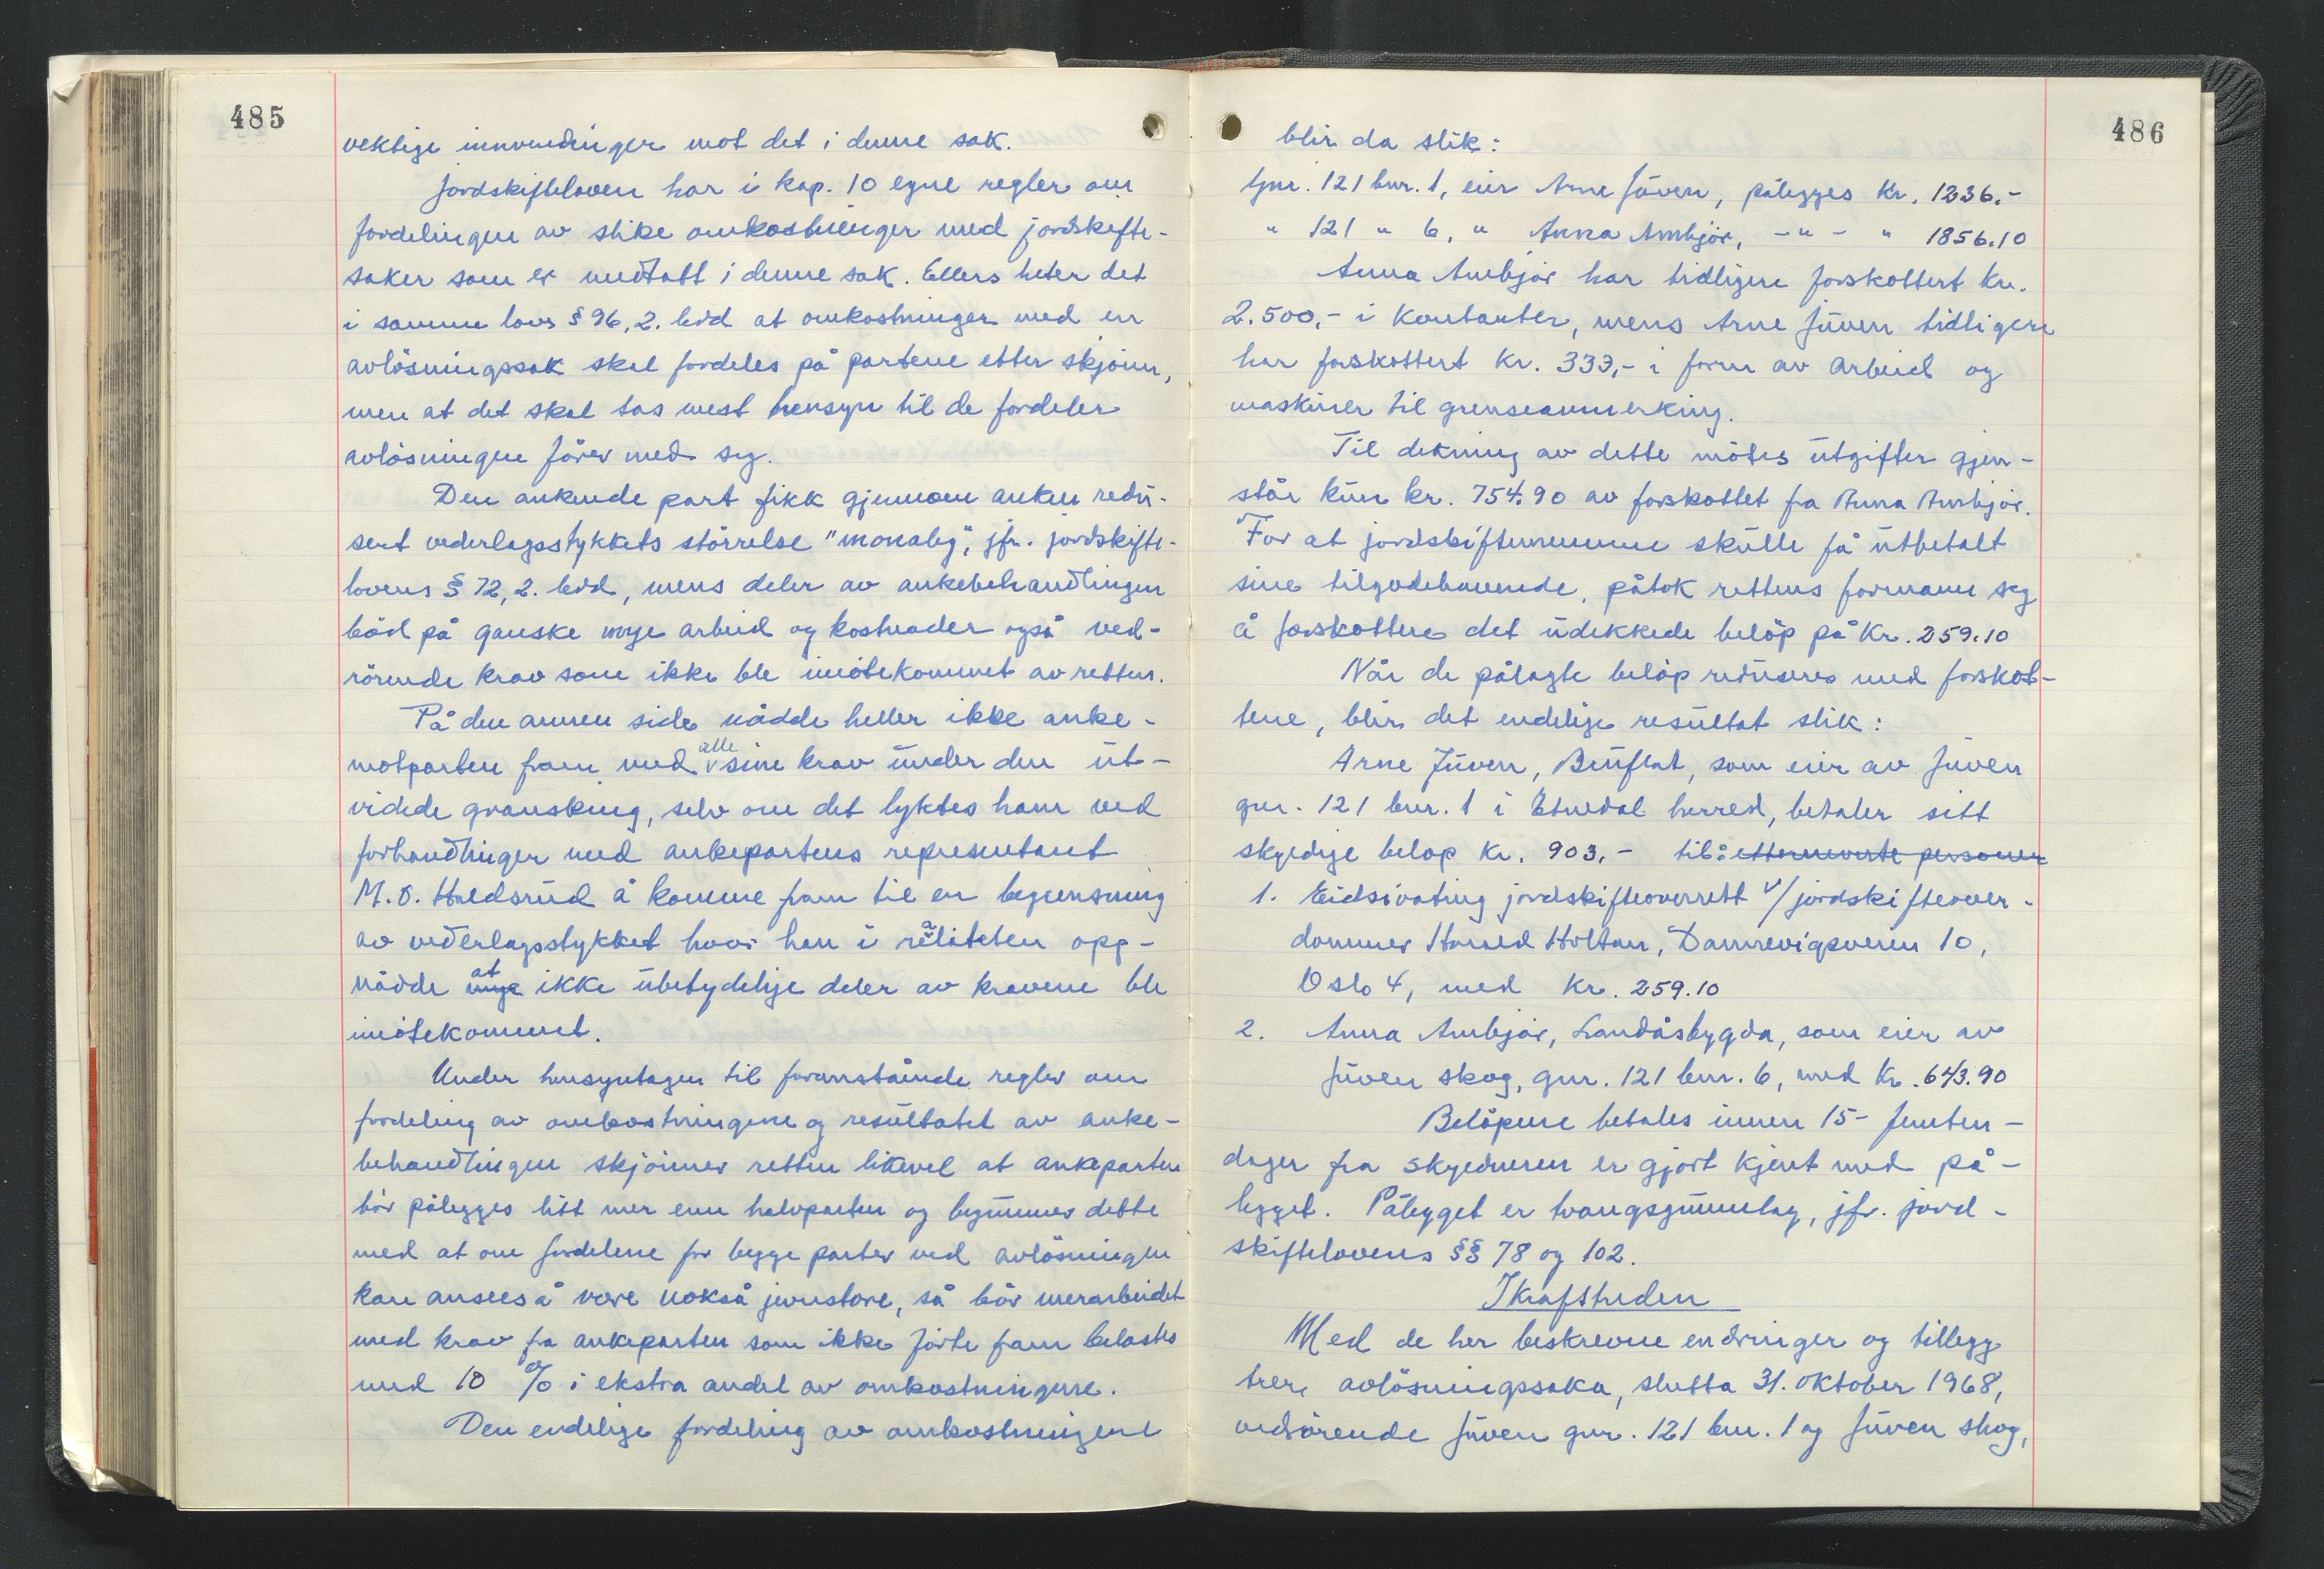 485
vektige innvendinger mot det i denne sak.
Jordskifteloven har i kap. 10 egne regler om
fordelingen av slike omkostninger med jordskifte-
saker som er medtatt i denne sak. Ellers heter det
i samme lovs § 96, 2. ledd at omkostninger med en
avlösningssak skal fordeles på partene etter skjönn,
men at det skal tas mest hensyn til de fordeler
avlösningen förer med seg.
Den ankende part fikk gjennom anken redu-
sert vederlagsstykkets störrelse "monaleg", jfr. jordskifte-
lovens § 72, 2. ledd, mens deler av ankebehandlingen
böd på ganske mye arbeid og kostnader også ved-
rörende krav som ikke ble imötekommet av retten.
På den annen side nådde heller ikke anke-
motparten fram med alle sine krav under den ut-
videde gransking, selv om det lyktes ham ved
forhandlinger med ankepartens representant
M. O. Haldsrud å komme fram til en begrensning
av vederlagsstykket hvor han i realiteten opp-
nådde mye at ikke ubetydelige deler av kravene ble
imötekommet.
Under hensyntagen til foranstående regler om
fordeling av omkostningene og resultatet av anke-
behandlingen skjönner retten likevel at ankeparten
bör pålegges litt mer enn halvparten og begrunner dette
med at om fordelene for begge parter ved avlösningen
kan ansees å være nokså jevnstore, så bör merarbeidet
med krav fra ankeparten som ikke förte fram belastes
med 10 % i ekstra andel av omkostningene.
Den endelige fordeling av omkostningene
486
blir da slik:
Gnr. 121 bnr. 1, eier Arne Juven, pålegges kr. 1236.-
" 121 " 6, " Anna Ambjör, -"- " 1856.10
Anna Ambjör har tidligere forskottert kr.
2.500,- i kontanter, mens Arne Juven tidligere
har forskottert kr. 333,- i form av arbeid og
maskiner til grenseavmerking.
Til dekning av dette mötes utgifter gjen-
står kun kr. 754.90 av forskottet fra Anna Ambjör.
For at jordskiftemennene skulle få utbetalt
sine tilgodehavende, påtok rettens formann seg
å forskottere det udekkede belöp på kr. 259.10
Når de pålagte belöp reduseres med forskot-
tene, blir det endelige resultat slik:
Arne Juven, Bruflat, som eier av Juven
gnr. 121 bnr. 1 i Etnedal herred, betaler sitt
skyldige belöp kr. 903.- til: etternevnte personer
1. Eidsivating jordskifteoverrett v/ jordskifteover-
dommer Harald Holtan, Dannevigsveien 10,
Oslo 4, med kr. 259.10
2. Anna Ambjör, Landåsbygda, som eier av
Juven skog, gnr. 121 bnr. 6, med kr. 643.90
Belöpene betales innen 15- femten -
dager fra skyldneren er gjort kjent med på-
legget. Pålegget er tvangsgrunnlag, jfr. jord-
skiftelovens §§ 78 og 102.
Ikraftreden
Med de her beskrevne endringer og tillegg
trer avlösningssaka, slutta 31. oktober 1968,
vedrörende Juven gnr. 121 bnr. 1 og Juven skog,